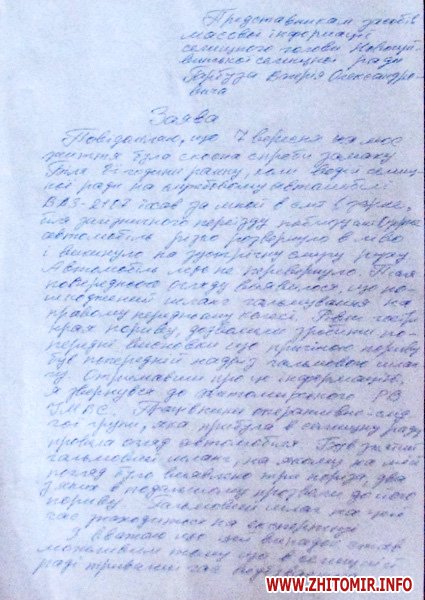 Представникам засобів
масової інформації
селищного голови Новогуй-
винської селищної ради
Гарбуза Валерія Олександро-
вича
Заява
Повідомляю, що 7 вересня на моє
життя була скоєна спроба замаху
Біля 8ї години ранку, коли водій селищ-
ної ради на службовому автомобілі
ВАЗ-2107 їхав за мной в
біля залізничного переїзду поблизу
автомобіль різко розвернуло в ліво
і викинуло на зустрічну смугу руху
Автомобіль ледь не перевернуло. Після
поверхового огляду виявилося, що по-
шкоджений шланг гальмування на
правому передньому колесі. Рвані
краї пориву, дозволили зробити по-
передні висновки що причиною пориву
був попередній надріз гальмового шлан-
гу. Отримавши про це інформацію,
я звернувся до Житомирського РВ
УМВС. Працівники оперативно-слід-
чої групи, яка прибула в селищну раду
провела огляд автомобіля. Був знятий
гальмовий шланг, на якому на мій
погляд було виявлено три порізи, два
з яких в подальшому призвели до його
пориву. Гальмовий шланг на цей
час знаходиться на експертизі
Я вважаю що цей випадок став
можливим тому що в селищній
раді тривалий час
WWW.ZHITOMIR.INFO